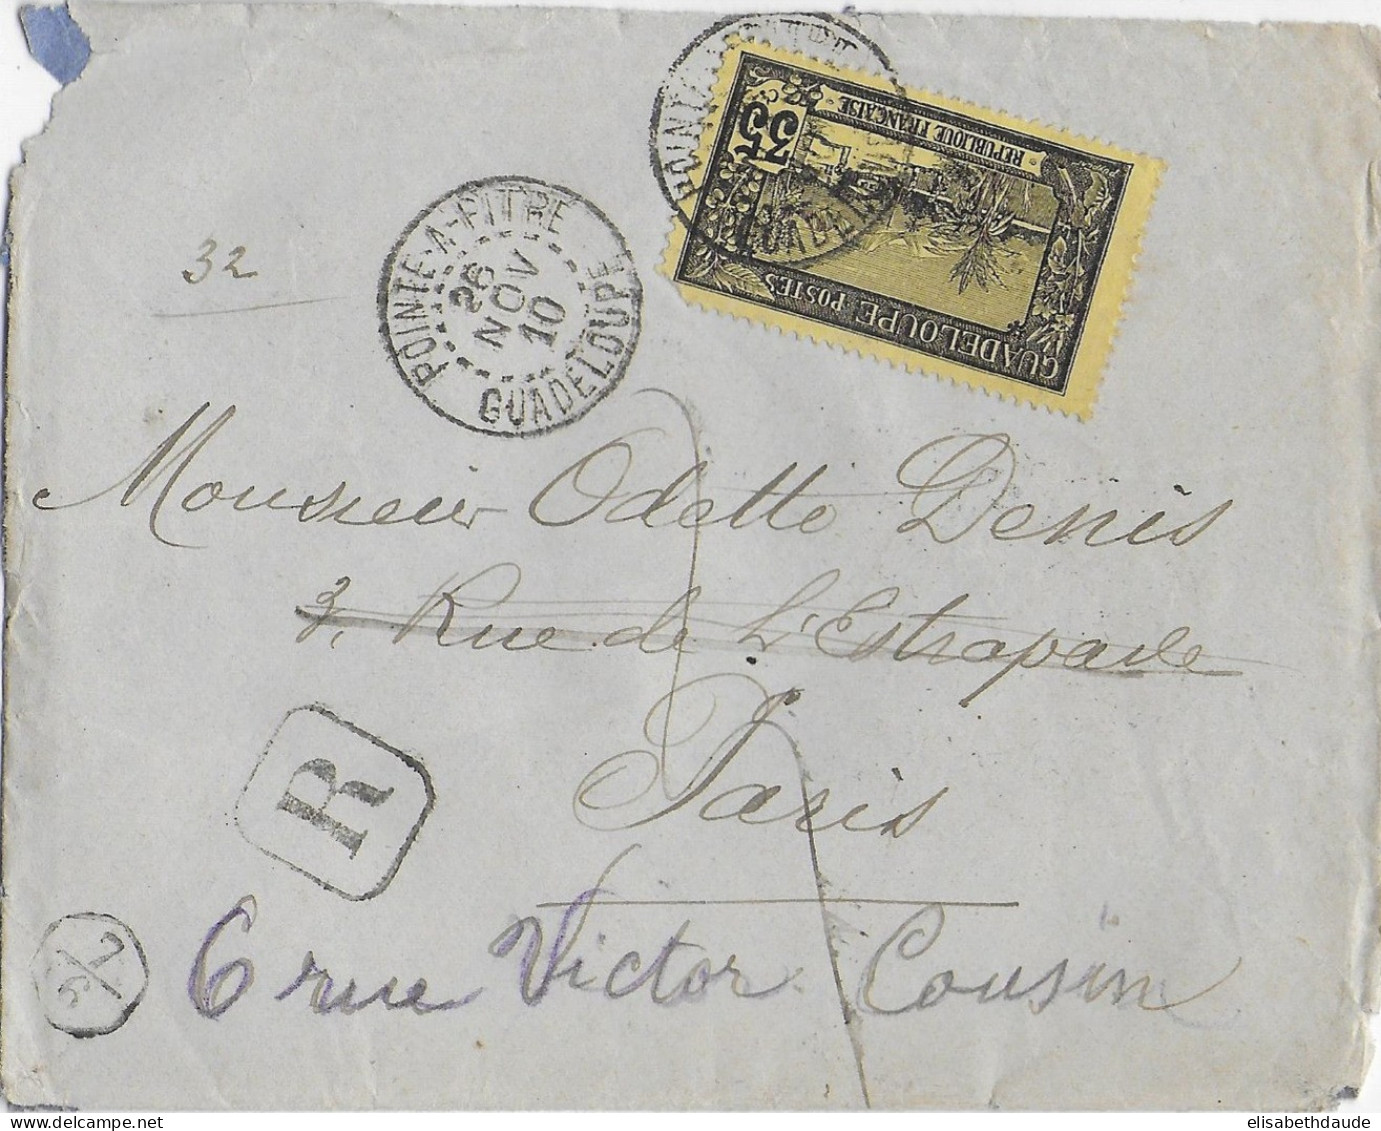 POINTE-A-PITRE
GUADELOUPE
35
REPUBLIQUE FRANÇAISE
GUADELOUPE POSTES
32
POINTE-A-PITRE
26
NOV
10
GUADELOUPE
Monsieur Odette Denis
3, Rue de L'Estrapade
Paris
R
6 rue Victor Cousin
elisabethdaude